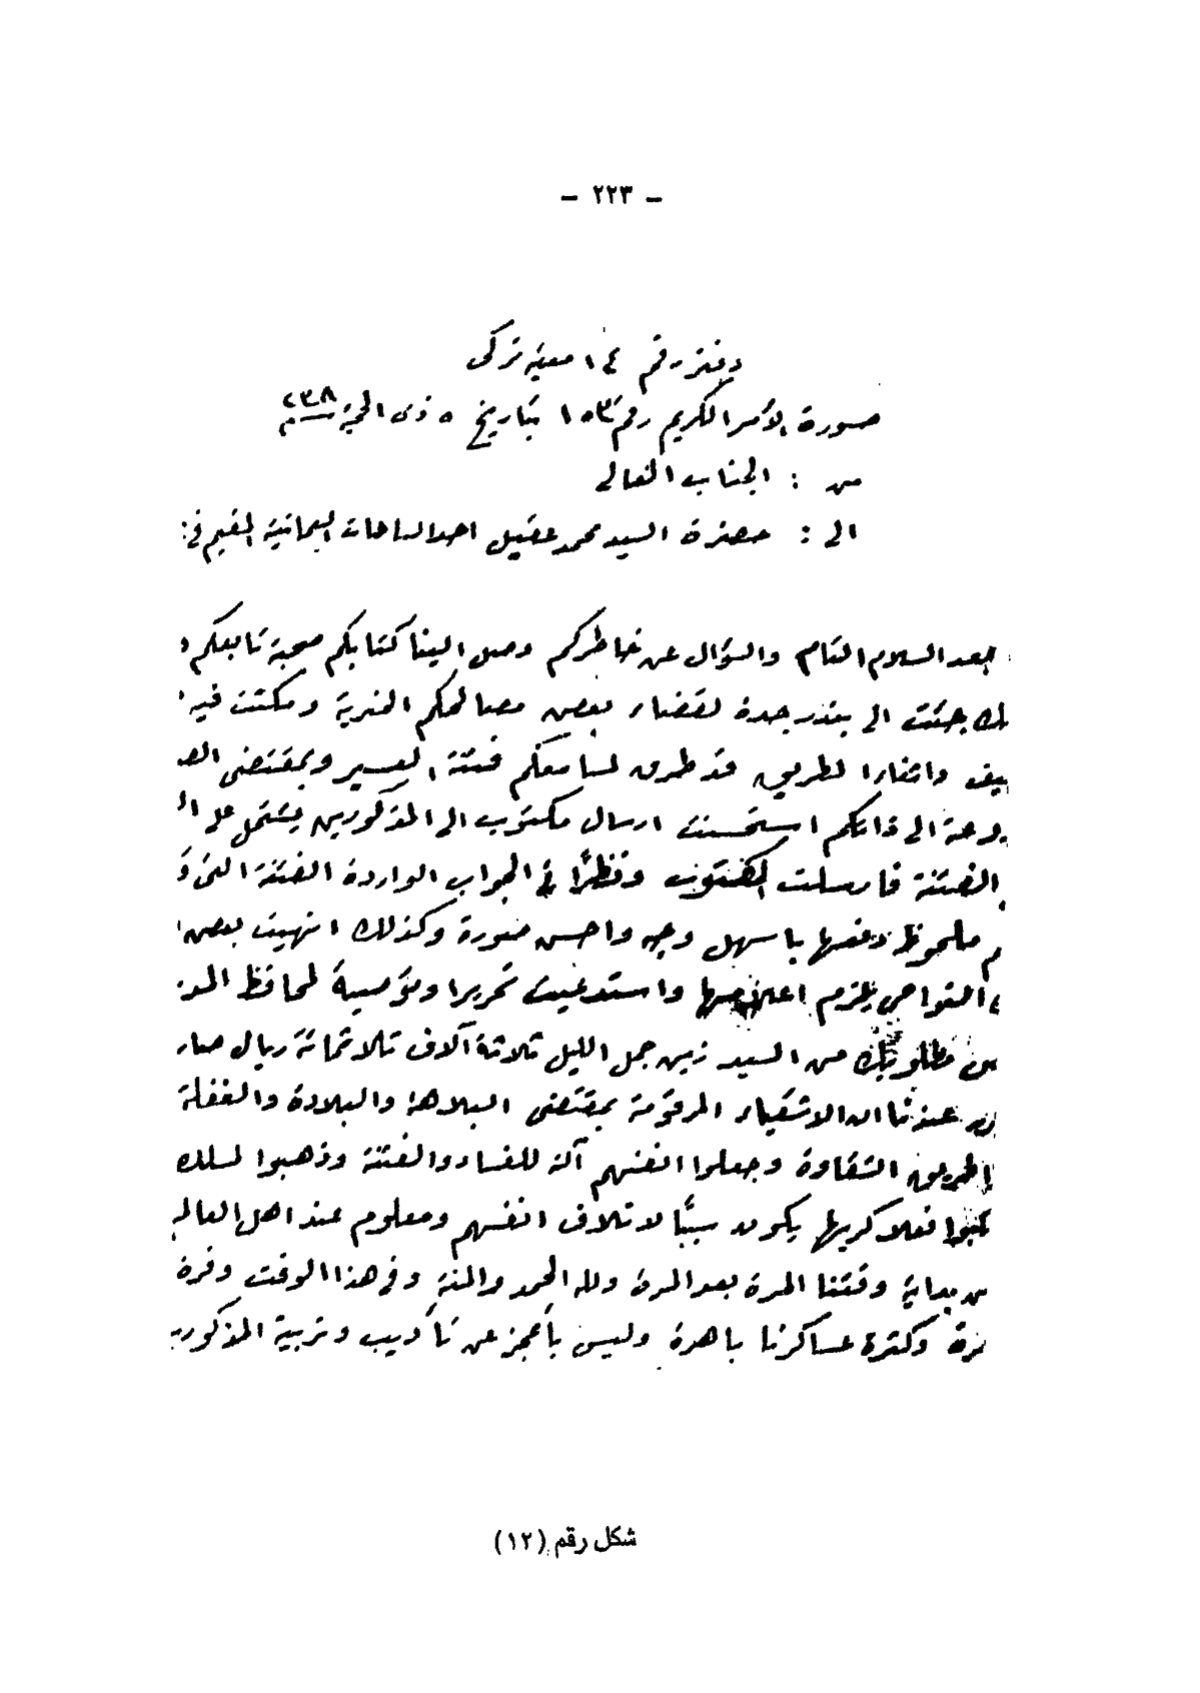 - ٢٢٣ -
دفتر رقم ١٤ معيه تركى
صورة الأمر الكريم رقم ١٥٣ بتاريخ ٥ ذى الحجة ٢٣٨
من : الجناب العالى
الى : حضرة السيد محمد عقيل احد السادات اليمانية المقيم فى:
بعد السلام التام والسؤال عن خاطركم وصل الينا كتابكم صحبة تابعكم
جئت الى بندر جدة لقضاء بعض مصالحكم الخيرية ومكثت فيه
وانتظارا لطريق قد طرق لسامعكم فتنة العسير وبمقتضى
الى ذاتكم استحسنت ارسال مكتوب الى المذكورين يشتمل على
الفتنة فارسلت المكتوب ونظرًا فى الجواب الواردة الفتنة التى
ملحوظ دفعها باسهل وجه واحسن صورة وكذلك انهيت بعض
النواحى يلزم اعلامها واستدعيت تحريرا وتوصية لمحافظ
مطلوبك من السيد زين جمل الليل ثلاثة آلاف ثلاثمائة ريال صار
عندنا ان الاشقياء المرقومة بمقتضى البلاهة والبلادة والغفلة
طريق الشقاوة وجعلوا انفسهم آلة للفساد والفتنة وذهبوا لسلك
فعلا كريها يكون سببًا لاتلاف انفسهم ومعلوم عند اهل العالم
بداية وقتنا المرة بعد المرة ولله الحمد والمنة وفى هذا الوقت وفرة
وكثرة عساكرنا باهرة وليس بأعجز عن تأديب وتربية
شكل رقم (١٢)